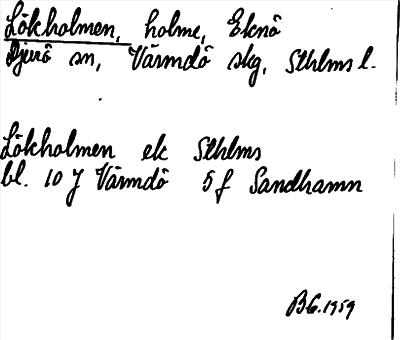 Lökholmen, holme, Eknö
Djurö sn, Värmdö skg, Sthlms l.
Lökholmen ek Sthlms
bl. 10 J Värmdö 5 f Sandhamn
BG. 1959